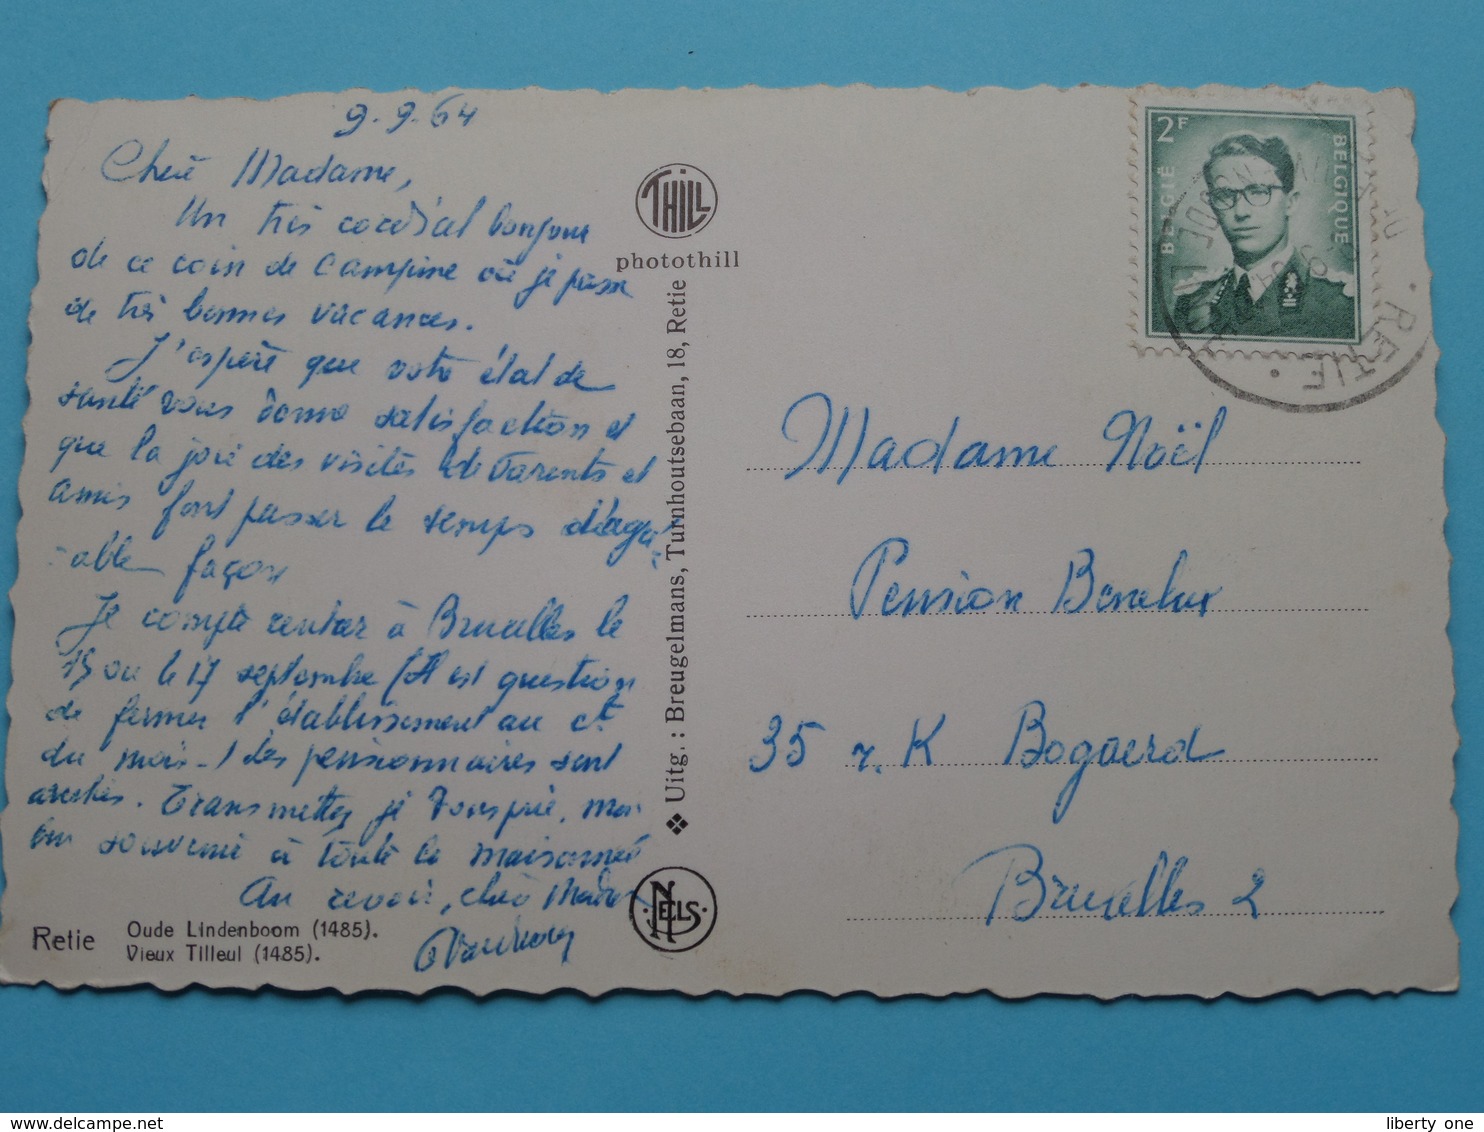 9.9.64
Chère Madame,
Un très cordial bonjour
de ce coin de Campine où je passe
de très bonnes vacances.
J'espère que votre état de
santé vous donne satisfaction et
que la joie des visites de Parents et
amis font passer le temps d'agré-
able façon
Je compte rentrer à Bruxelles le
15 ou le 17 septembre (Il est question
de fermer l'établissement au ct
du mois -) des pensionnaires sont
Transmettez, je vous prie, mon
bon souvenir à toute la maisonnée
Au revoir, chère Madame
Retie
Oude Lindenboom (1485).
Vieux Tilleul (1485).
THILL
photothill
❖ Uitg. : Breugelmans, Turnhoutsebaan, 18, Retie
NELS
2F
BELGIË
BELGIQUE
RETIE
Madame Noël
Pension Benelux
35 r. K Bogaerd
Bruxelles 2
liberty one